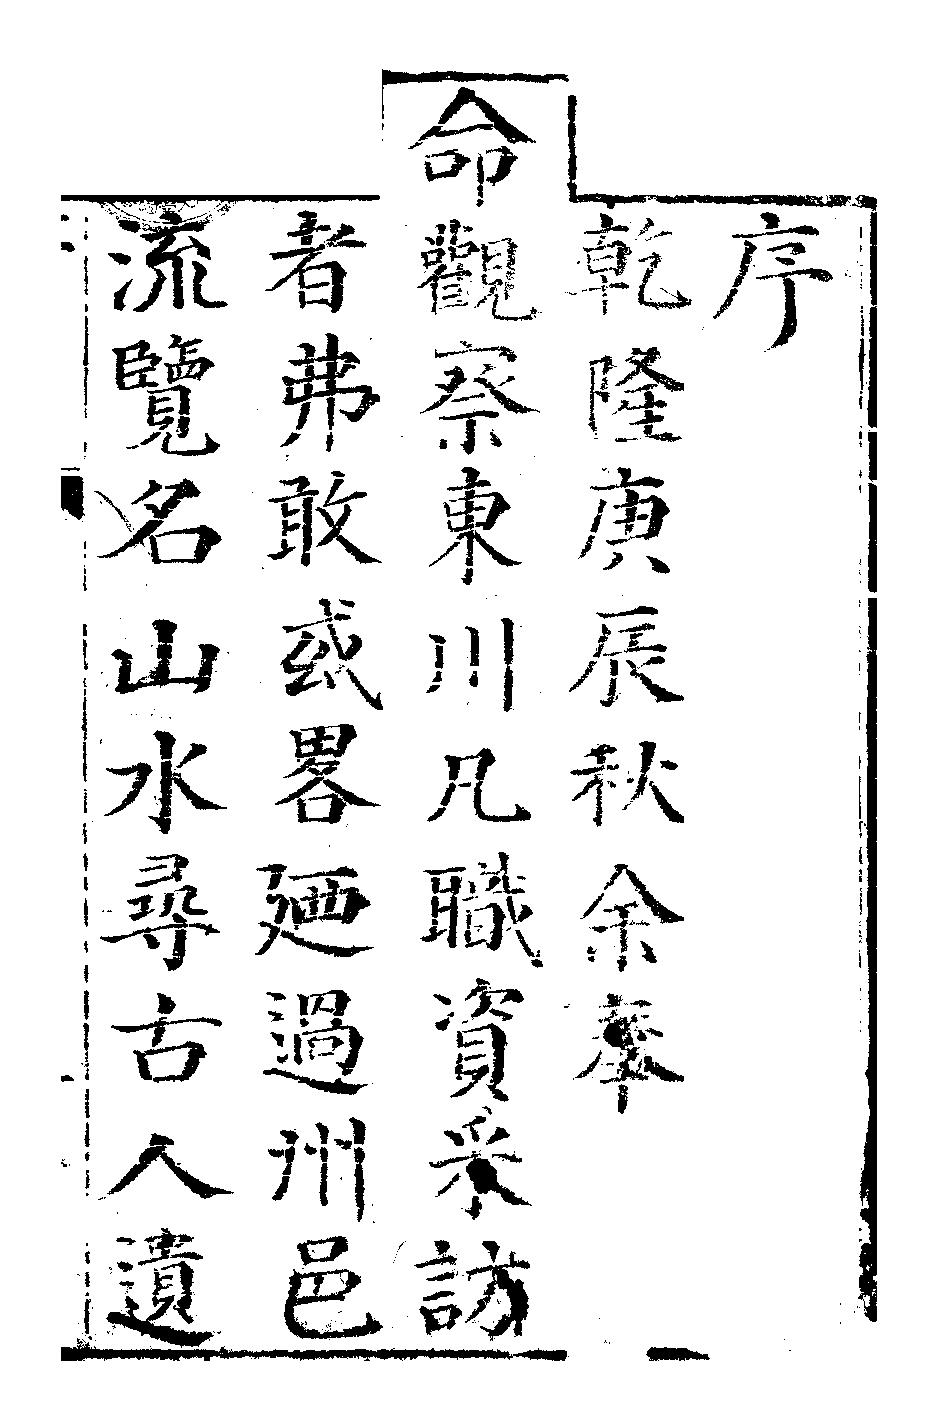 序
乾隆庚辰秋余奉
命觀察東川凡職資采訪
者弗敢或畧廼過州邑
流覽名山水尋古人遺